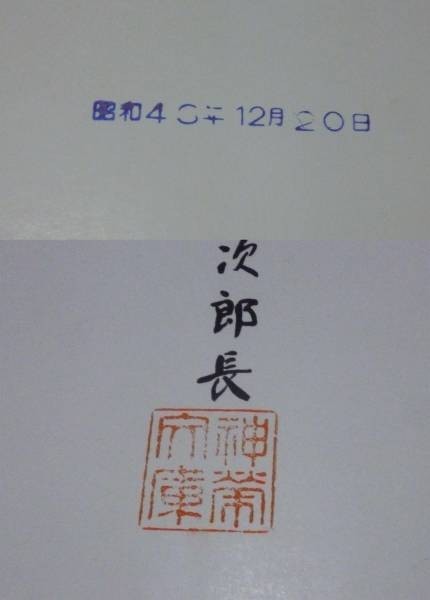 昭和40年12月20日
次郎長
神榮文庫